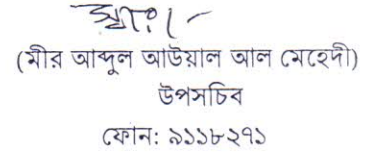 স্বাঃ/-
(মীর আব্দুল আউয়াল আল মেহেদী)
উপসচিব
ফোন: ৯১১৮২৭১